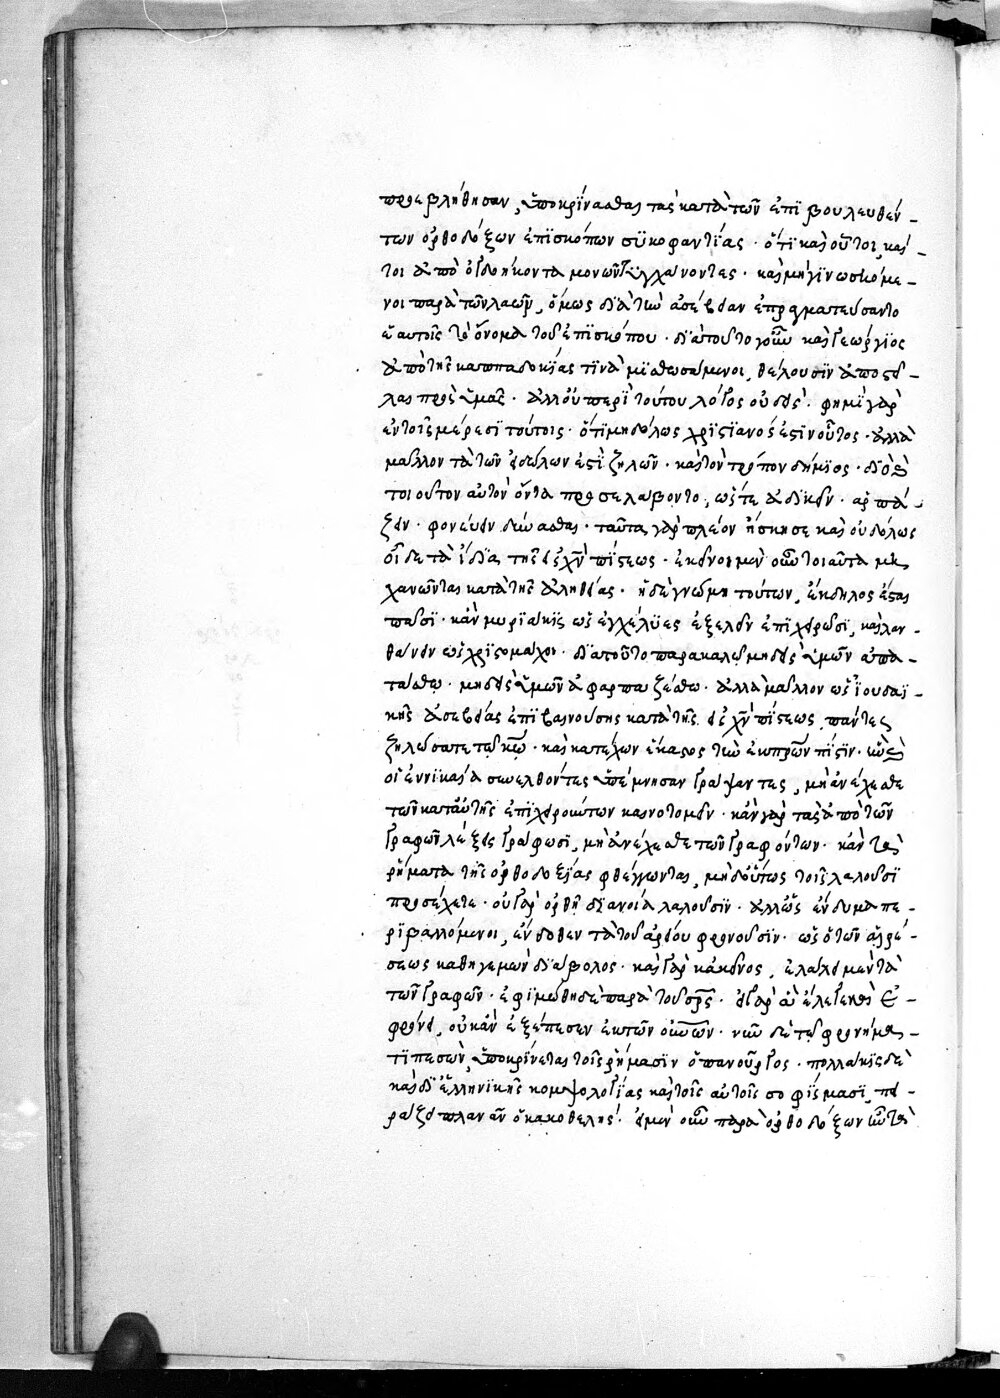 προεβλήθησαν, ὑποκρίνασθαι τὰς κατὰ τῶν ἐπϊβουλευθέν-
των ὀρθοδόξων ἐπϊσκόπων συκοφαντΐας· ὅτϊ καὶ οὗτοι, καί-
τοι ἀπὸ ὀγδοήκοντα μονῶν τυγχάνοντες· καὶ μὴ γϊνωσκόμε-
νοι παρὰ τῶν λαῶν, ὅμως δϊὰ τὴν ἀσέβειαν ἐπραγματεύσαντο
ἑαυτοῖς τὸ ὄνομα τοῦ ἐπϊσκόπου· δϊὰ τοῦτο γοῦν καὶ γεώργϊος
ἀπὸ τῆς καππαδοκΐας τϊνὰ μϊσθωσάμενοι, θέλουσϊν ἀποστεῖ-
λαι πρὸς ὑμᾶς· ἀλλ' οὐ περὶ τούτου λόγος οὐδείς· φημὶ γὰρ
ἐν τοῖς μέρεσϊ τούτοις· ὅτϊ μηδόλως χρϊστϊανός ἐστϊν οὗτος· ἀλλὰ
μᾶλλον τὰ τῶν εἰδώλων ἐστὶ ζηλῶν· καὶ τὸν τρόπον δήμϊος· δϊὸ καὶ
τοιοῦτον αὐτὸν ὄντα προσελάβοντο, ὥστε ἀδϊκεῖν· ἁρπά-
ζειν· φονεύειν δύνασθαι· ταῦτα γὰρ πλέον ἤσκησε καὶ οὐδόλως
οἶδε τὰ ἴδϊα τῆς εἰς χν πίστεως· ἐκεῖνοι μὲν οὖν τοιαῦτα μη
χανῶνται κατὰ τῆς ἀληθείας· ἡ δὲ γνώμη τούτων, ἔκδηλος ἔσται
πᾶσϊ· κἂν μυρϊάκϊς ὡς ἐγχέλυες ἐξελθεῖν ἐπϊχειρῶσϊ, καὶ λαν-
θάνειν ὡς χρϊστομάχοι· δϊὰ τοῦτο παρακαλῶ μηδεὶς ὑμῶν ἀπα-
τάσθω· μηδεὶς ὑμῶν ἁφαρπαζέσθω· ἀλλὰ μᾶλλον ὡς ἰουδαϊ-
κῆς ἀσεβείας ἐπϊβαινούσης κατὰ τῆς εἰς χν πίστεως, πάντες
ζηλώσατε τῷ κω· καὶ κατέχων ἕκαστος τὴν ἐκ πρων πίστϊν· ἣν καὶ
οἱ ἐν νϊκαίᾳ συνελθόντες ὑπέμνησαν γράψαντες, μὴ ἀνέχεσθε
τῶν κατ' αὐτῆς ἐπϊχειρούντων καινοτομεῖν· κἂν γὰρ τὰς ἀπὸ τῶν
γραφῶν λέξεις γράφωσϊ, μὴ ἀνέχεσθε τῶν γραφόντων· κἂν τὰ
ῥήματα τῆς ὀρθοδοξΐας φθέγγωνται, μηδ' οὕτως τοῖς λαλοῦσϊ
προσέχετε· οὐ γὰρ ὀρθῇ δϊανοίᾳ λαλοῦσϊν· ἀλλ' ὡς ἔνδυμα πε-
ρϊβαλλόμενοι, ἔνδοθεν τὰ τοῦ ἀρείου φρονοῦσϊν· ὡς ὁ τῶν αἱρέ-
σεως καθηγεμὼν δϊάβολος· καὶ γὰρ κἀκεῖνος, ἐλάλει μὲν τὰ
τῶν γραφῶν· ἐφϊμώθη δὲ παρὰ τοῦ σρς· εἰ γὰρ ἃ ἔλεγε καὶ ἐ-
φρόνει, οὐκ ἂν ἐξέπεσεν ἐκ τῶν ουνων· νῦν δὲ τῷ φρονήμα-
τϊ πεσὼν, ὑποκρίνεται τοῖς ῥήμασϊν ὁ πανοῦργος· πολλάκϊς δὲ
καὶ δϊ' ἑλληνϊκῆς κομψολογΐας καὶ τοῖς αὐτοῖς σοφΐσμασϊ, πει-
ράζει πλανᾶν ὁ κακοθελής· εἰ μὲν οὖν παρὰ ὀρθοδόξων ἦν τὰ